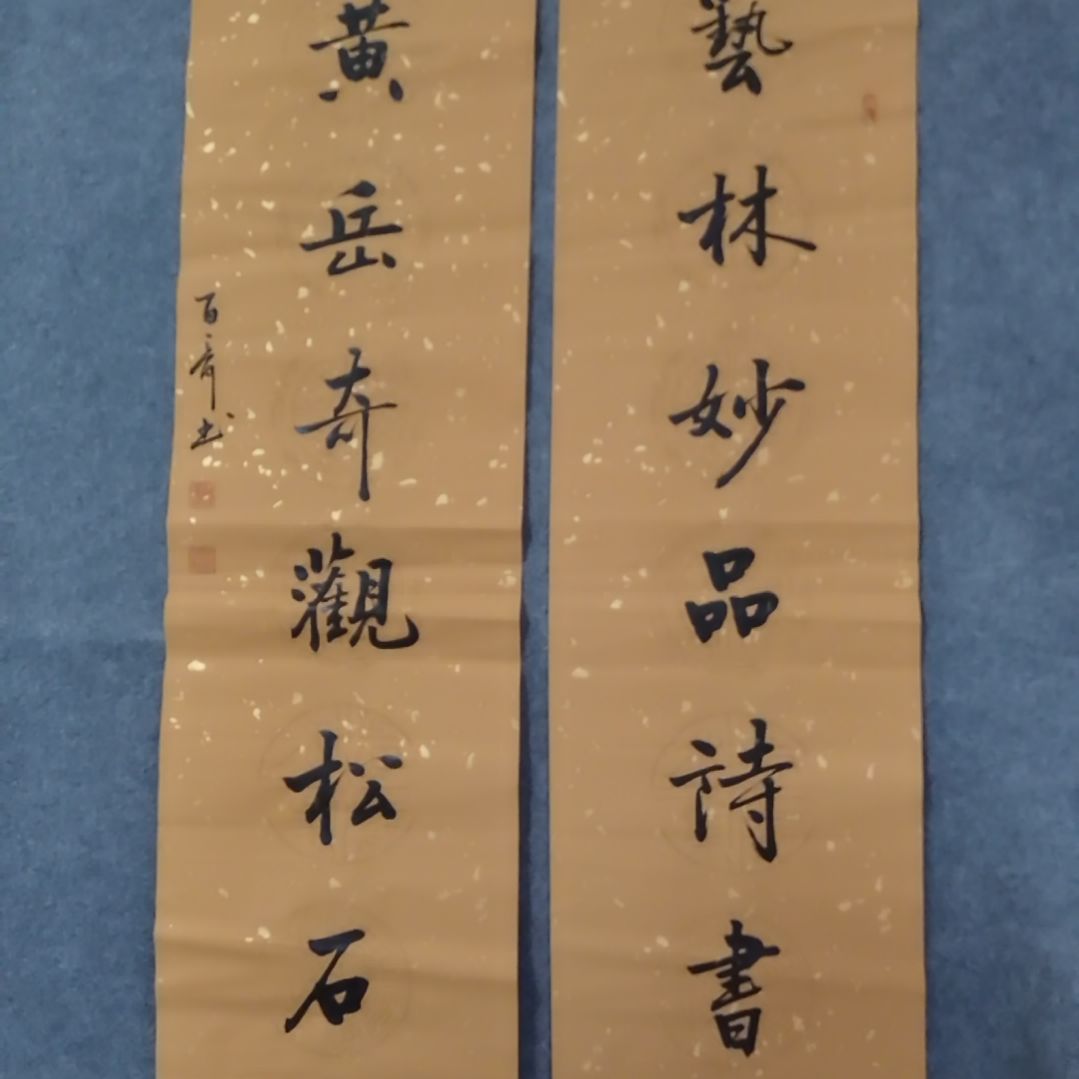 藝林妙品詩書
黃岳奇觀松石